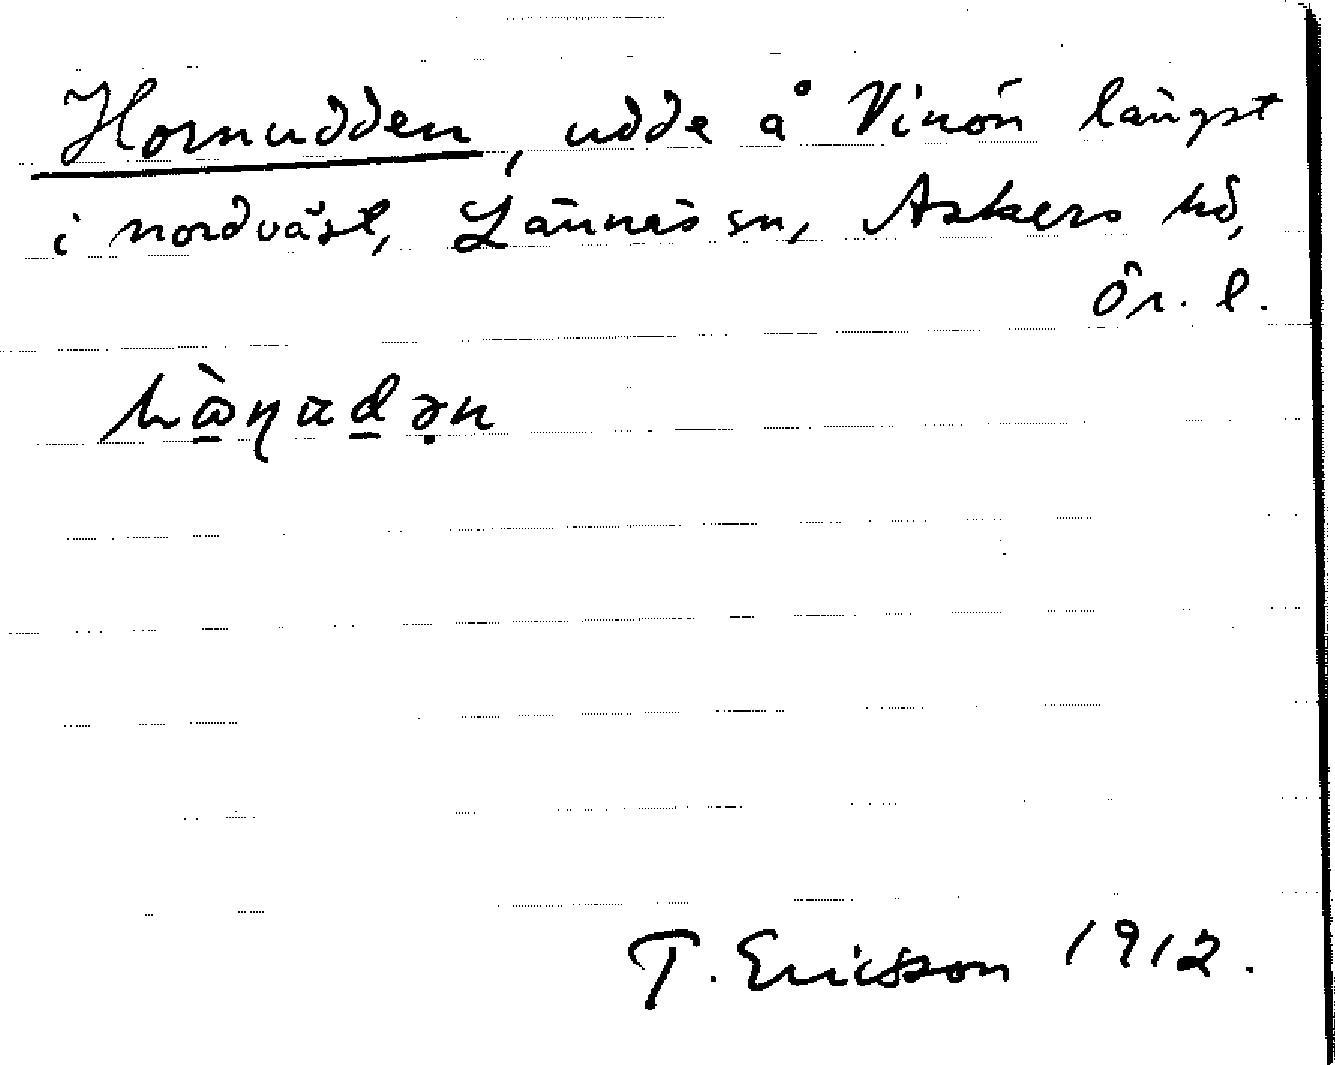 Hornudden, udde å Vinön längst
i nordväst, Lännäs sn, Askers hd,
Ör. l.
T. Ericsson 1912.